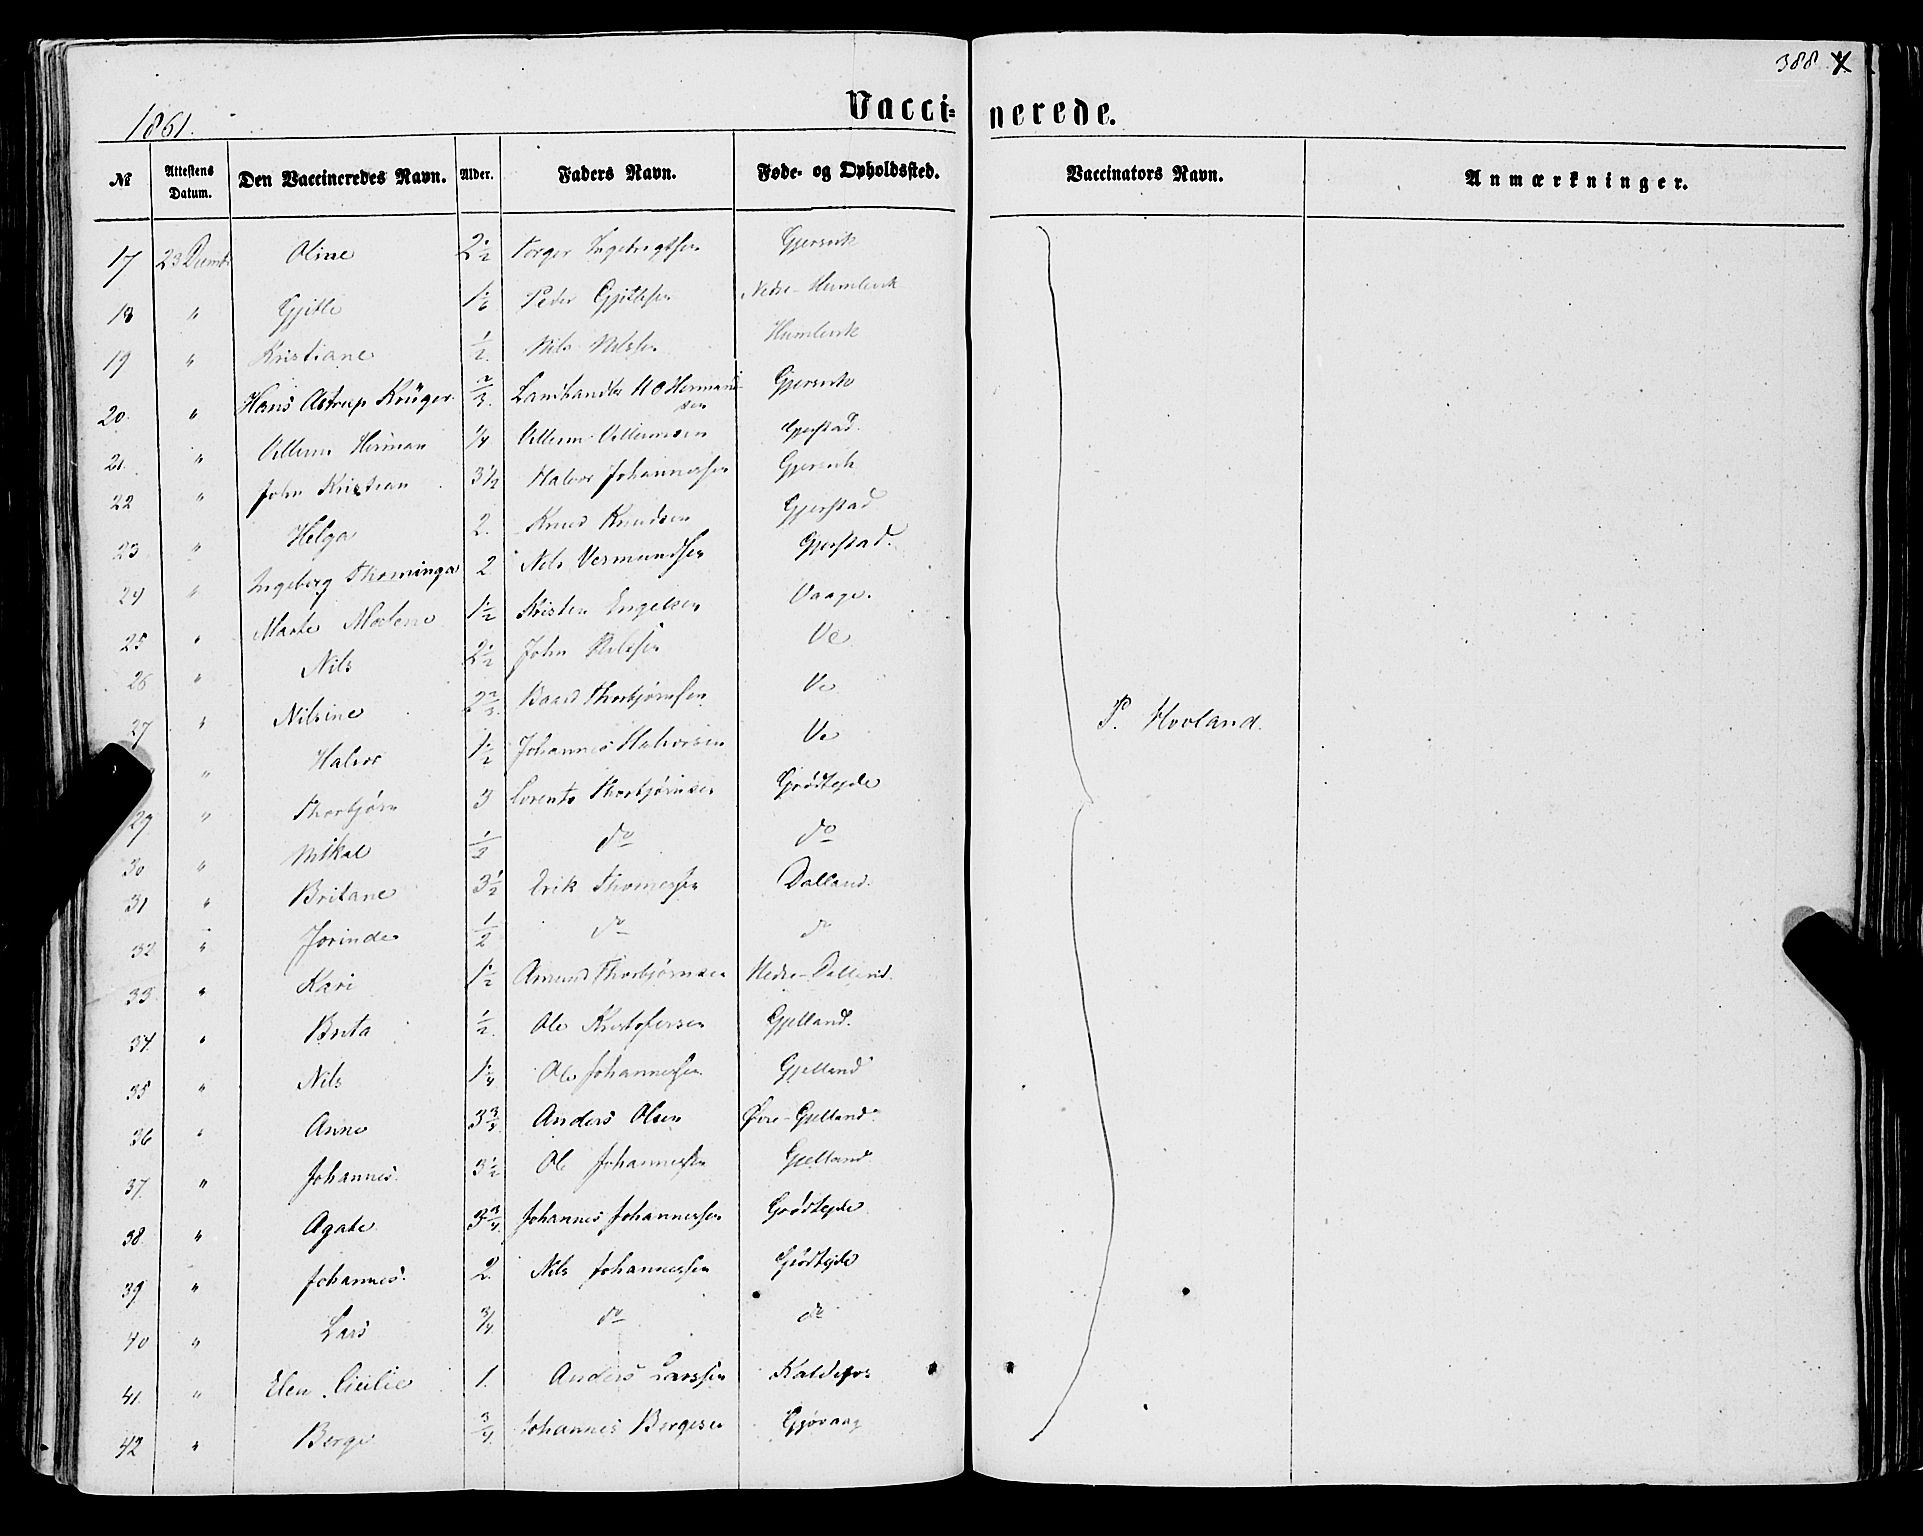 388
1861.
Vacci=nerede.
№ Attestens Datum. Den Vaccineredes Navn. Alder. Faders Navn. Føde- og Opholdssted. Vaccinators Navn. Anmærkninger.
17 23 Decmbr Oline 2 1/2 Torger Ingebrigtsen Gjersvik
18 " Gjitle Peder Gjitlesen Nedre-Humlevik
19 " Kristiane 1/2 Nils Nilssen Humlevik
20. " Hans Astrup Krüger 2/3. Landhandler Hermansen Gjersvik
21. " Villum Herman 1/4 Villum Villumsen Gjerstad.
22 " John Kristian 3 1/2 Halvor Johannessen Gjersvik
23 " Helga 2. Knud Knudsen Gjerstad
24 " Ingeborg Thominga 2 Nils Vermundsen Gjerstad.
25 " Marte Malene 1 1/2 Kristen Engelsen Vaage.
26 " Nils 2 1/2 John Nilssen Ve
27 " Nilsine 2 2/3 Baard Thorbjørnsen Ve
" Halvor 1 1/2 Johannes Halvorsen Ve
29 " Thorbjørn 3 Lorents Thorbjørnsen Grødtejde
30 " Mikal 1/2 do do
31 " Britane 3 1/2 Erik Thomessen Dalland.
32 " Jorinde 1/2 do do
33 " Kari 1 1/2 Amund Thorbjørnsen Nedre-Dalland.
34 " Brita 1/2. Ole Kristofersen Gjelland.
35 " Nils 1 1/4 Ole Johannessen Gjelland
36 " Anne 3 3/4 Anders Olsen Øvre-Gjelland.
37. " Johannes. 3 1/2 Ole Johannessen Gjelland
38. " Agate 3 3/4. Johannes Johannessen Grødtejde
39 " Johannes. 2. Nils Johannessen Grødtejde
40 " Lars 3/4 do do
41 " Elen Cicilie 1. Anders Larssen Kaldefos
42 " Berge 3/4. Johannes Bergesen Gjøvaag
P. Hovland.